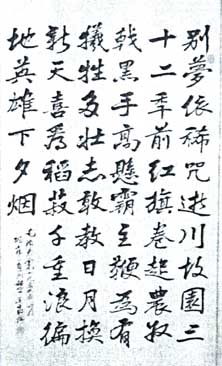 别夢依稀咒逝川故園三
十二年前红旗卷起農奴
戟黑手高懸霸主鞭為有
犧牲多壮志敢教日月換
新天喜看稻菽千重浪徧
地英雄下夕烟